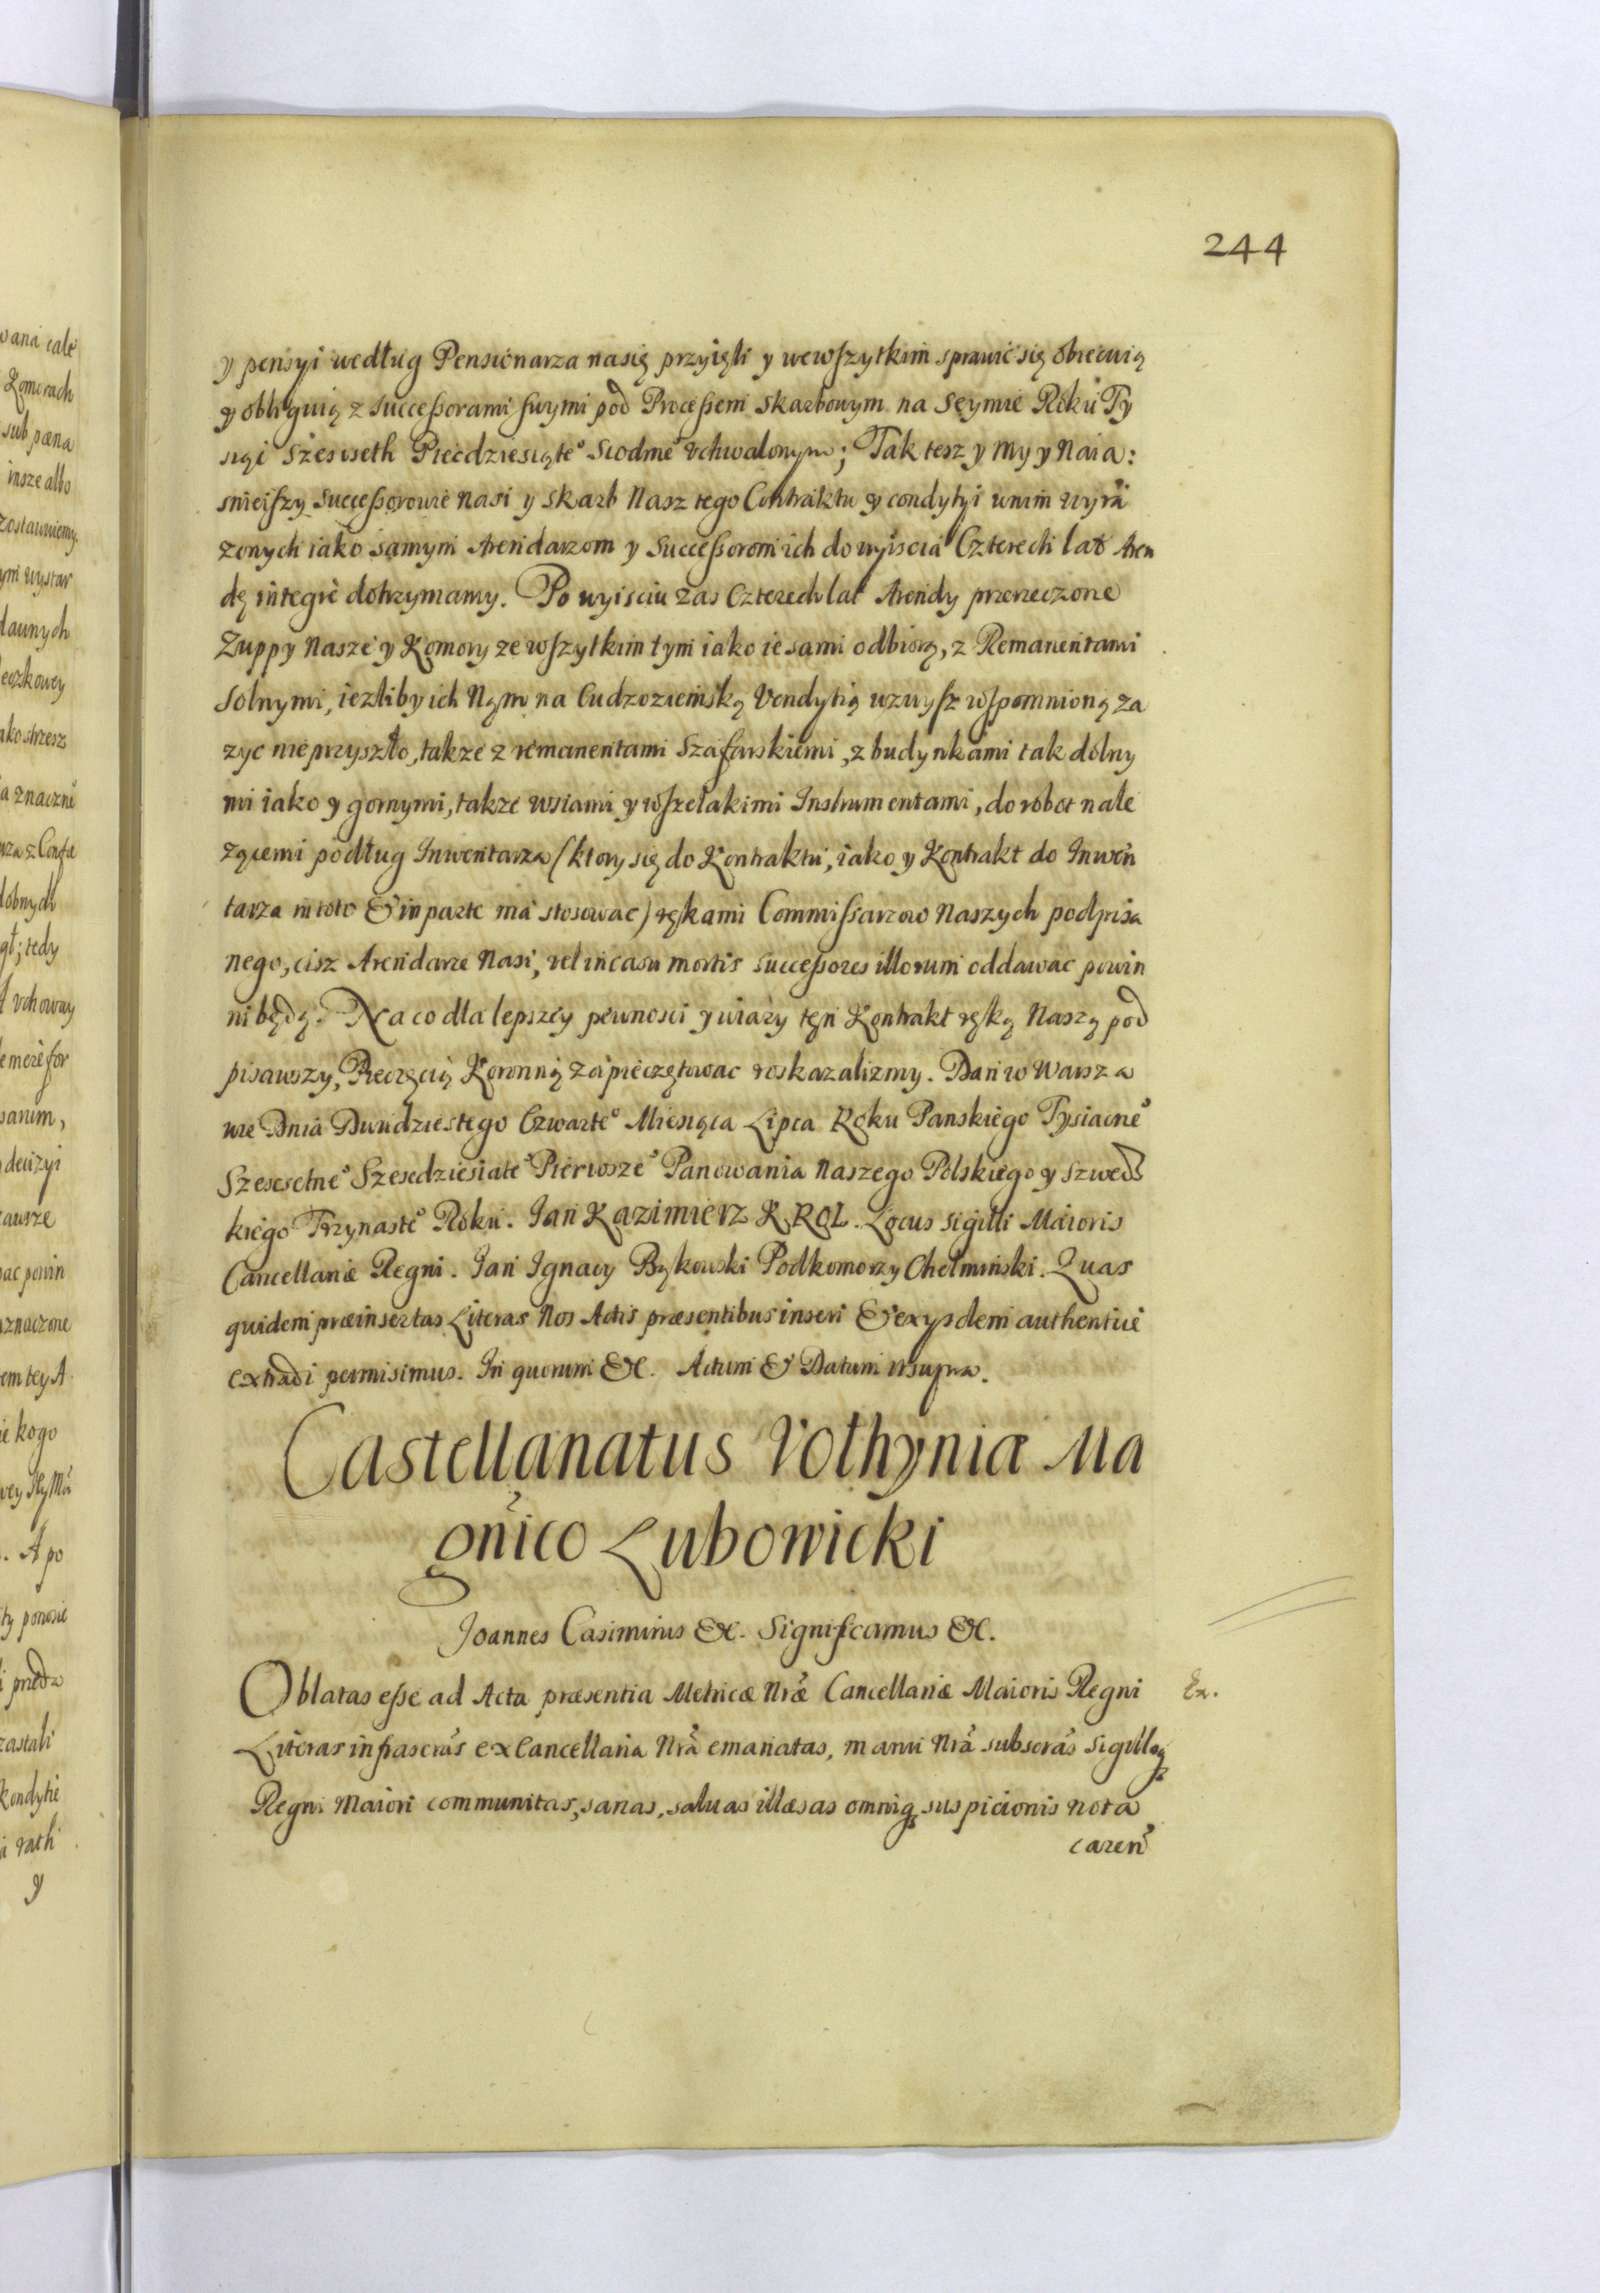 244
y pensyi według Pensionarza nasię przyięli y wewszytkim sprawić się obiecuią
y obliguią z successorami swymi pod Processem skarbowym na Seymie Roku Ty
siąi Szescseth Piecdziesiąte° Siodme° vchwalonym; Tak tesz y My y Naia:
snieiszy successorowie nasi y skarb Nasz tego Contraktu y condytyi wnim wyra
zonych iako samym Arendarzom y Successorom ich do wyiscia Czterech lat Aren
dę integre dotrzymamy. Po wyisciu zas Czterech lat Arendy przerzeczone
Zuppy Nasze y Komory ze wszytkim tym iako ie sami odbiorą, z Remanentami
Solnymi, iezliby ich Nąm na Cudzoziemską Vendytią wzwysz wspomnioną za
zyc nie przyszło, takze z remanentami Szafarskiemi, z budynkami tak dolny
mi iako y gornymi, takze wsiami y wszelakimi Instrumentami, do robot nale
zącemi podług Inwentarza (ktory się do Kontraktu, iako y Kontrakt do Inwen
tarza in toto & in parte ma stosowac) rękami Commissarzow Naszych podpisa
nego, cisz Arendarze Nasi, vel in casu mortis successores illorum oddawac powin
ni będą. Na co dla lepszey pewnosci y wiary tęn Kontrakt ręką Naszą pod
pisawszy, Pieczęcią Koronną zapieczętowac roskazalizmy. Dan w Warsza
wie Dnia Dwudziestego Czwarte° Miesiąca Lipca Roku Panskiego Tysiacne°
Szescsetne° Szescdziesiate° Pierwsze° Panowania Naszego Polskiego y Szweds
kiego Trzynaste° Roku. Jan Kazimierz KROL. Locus sigilli Maioris
Cancellariæ Regni. Jan Ignacy Bąkowski Podkomorzy Chełmiński. Quas
quidem præinsertas Literas Nos Actis præsentibus inseri & exysdem authentice
extradi permisimus. In quorum &c. Actum & Datum vtsupra.
Castellanatus Volhyniæ Ma
gnico Lubowicki
Joannes Casimirus &c. Significamus &c.
Oblatas esse ad Acta præsentia Metricæ Nræ Cancellariæ Maioris Regni
Ex.
Literas infrascras ex Cancellaria Nra emanatas, manu Nra subscras Sigilloq
Regni Maiori communitas, sanas, saluas illæsas omniq suspicionis nota
caren